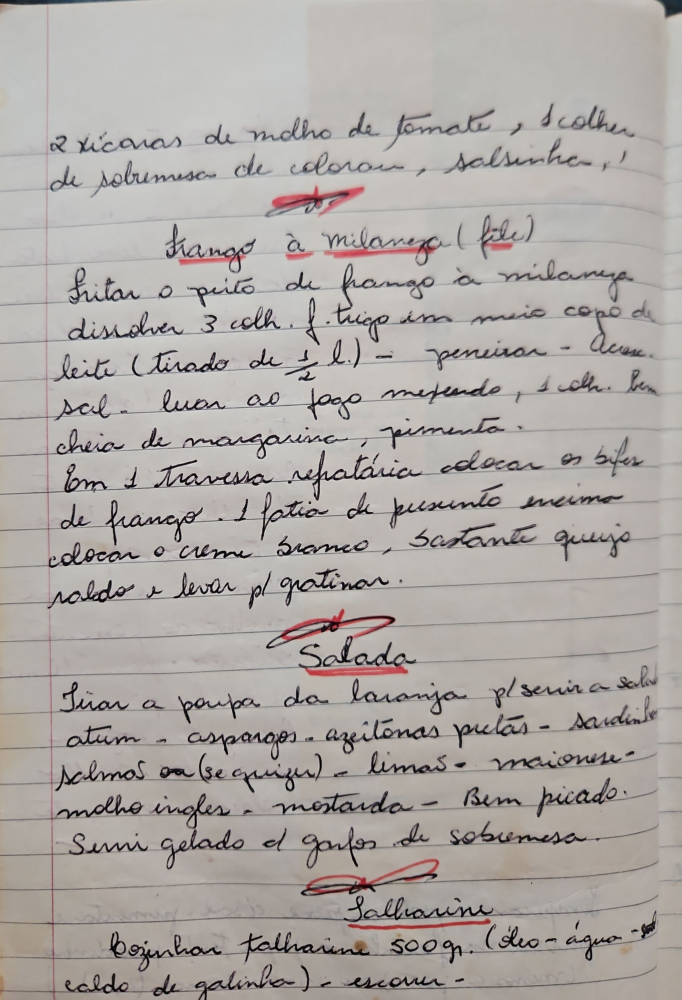 2 xícaras de molho de tomate, 1 colher
de sobremesa de colorau, salsinha,
Frango à milaneza (filé)
Fritar o peito de frango à milaneza
dissolver 3 colh. f. trigo em meio copo de
leite (tirado de 1/2 l.) - peneirar - Acresc.
sal - levar ao fogo mexendo, 1 colh. bem
cheia de margarina, pimenta.
Em 1 travessa refratária colocar os bifes
de frango. 1 fatia de presunto encima
colocar o creme branco, bastante queijo
ralado e levar p/ gratinar.
Salada
Tirar a poupa da laranja p/ servir a salada
atum - aspargos - azeitonas pretas - sardinha
salmos (se quizer) - limas - maionese -
molho ingles - mostarda - Bem picado.
Servi gelado c/ garfos de sobremesa.
Talharine
Cozinhar talharine 500 gr. (óleo - água -
caldo de galinha) - escorrer -